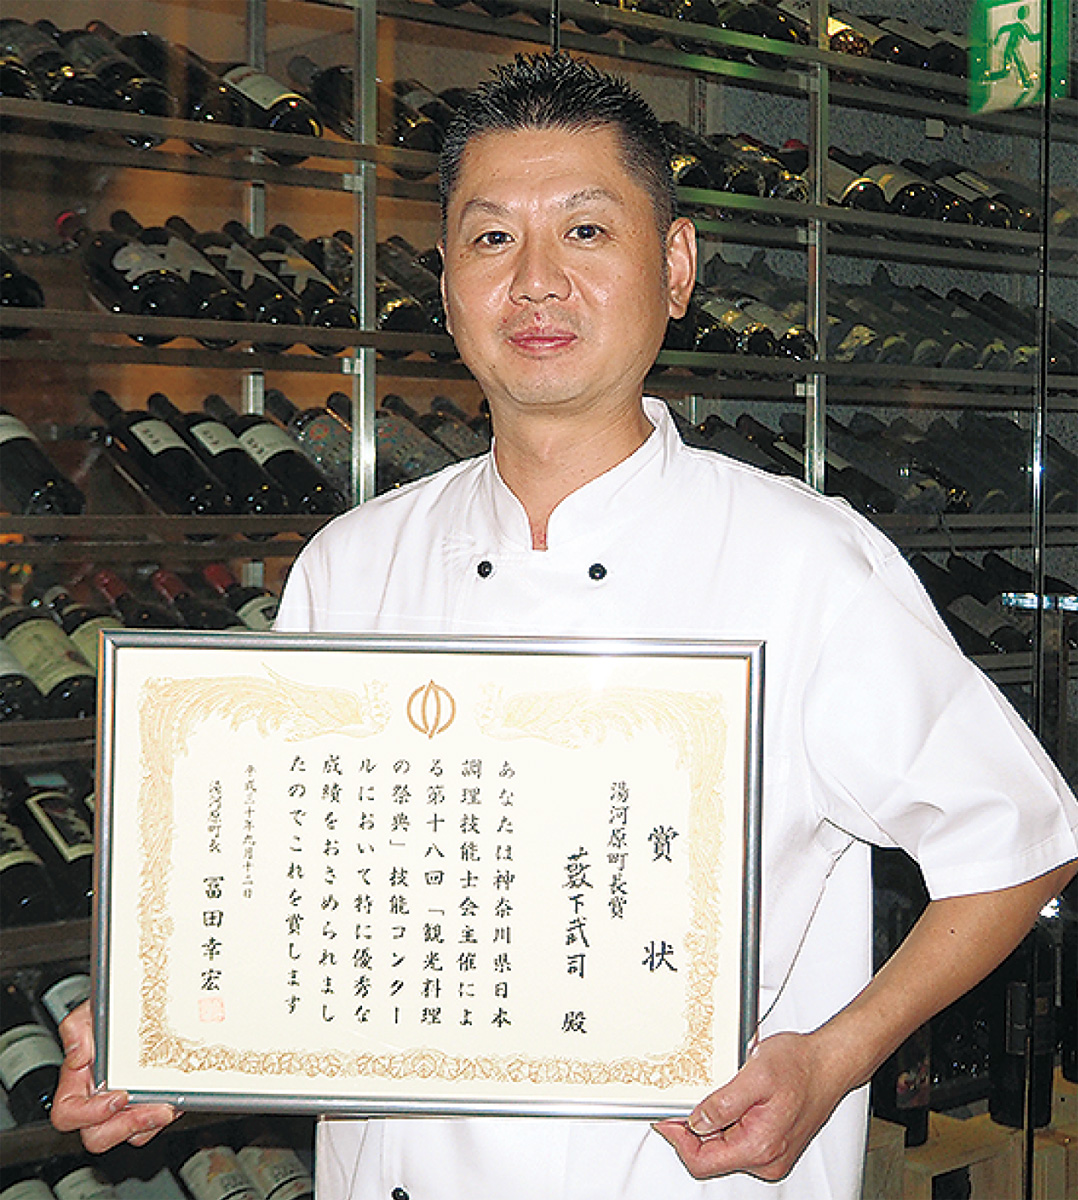 賞状
湯河原町長賞
薮下武司 殿
あなたは神奈川県日本
調理技能士会主催によ
る第十八回「観光料理
の祭典」技能コンクー
ルにおいて特に優秀な
成績をおさめられまし
たのでこれを賞します
平成三十年九月十二日
湯河原町長 冨田幸宏